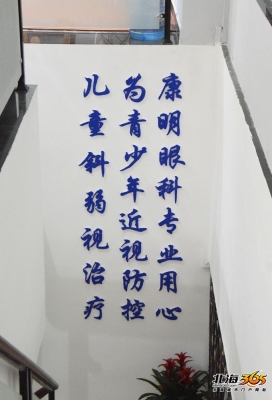 康明眼科专业用心
为青少年近视防控
儿童斜弱视治疗
北海365